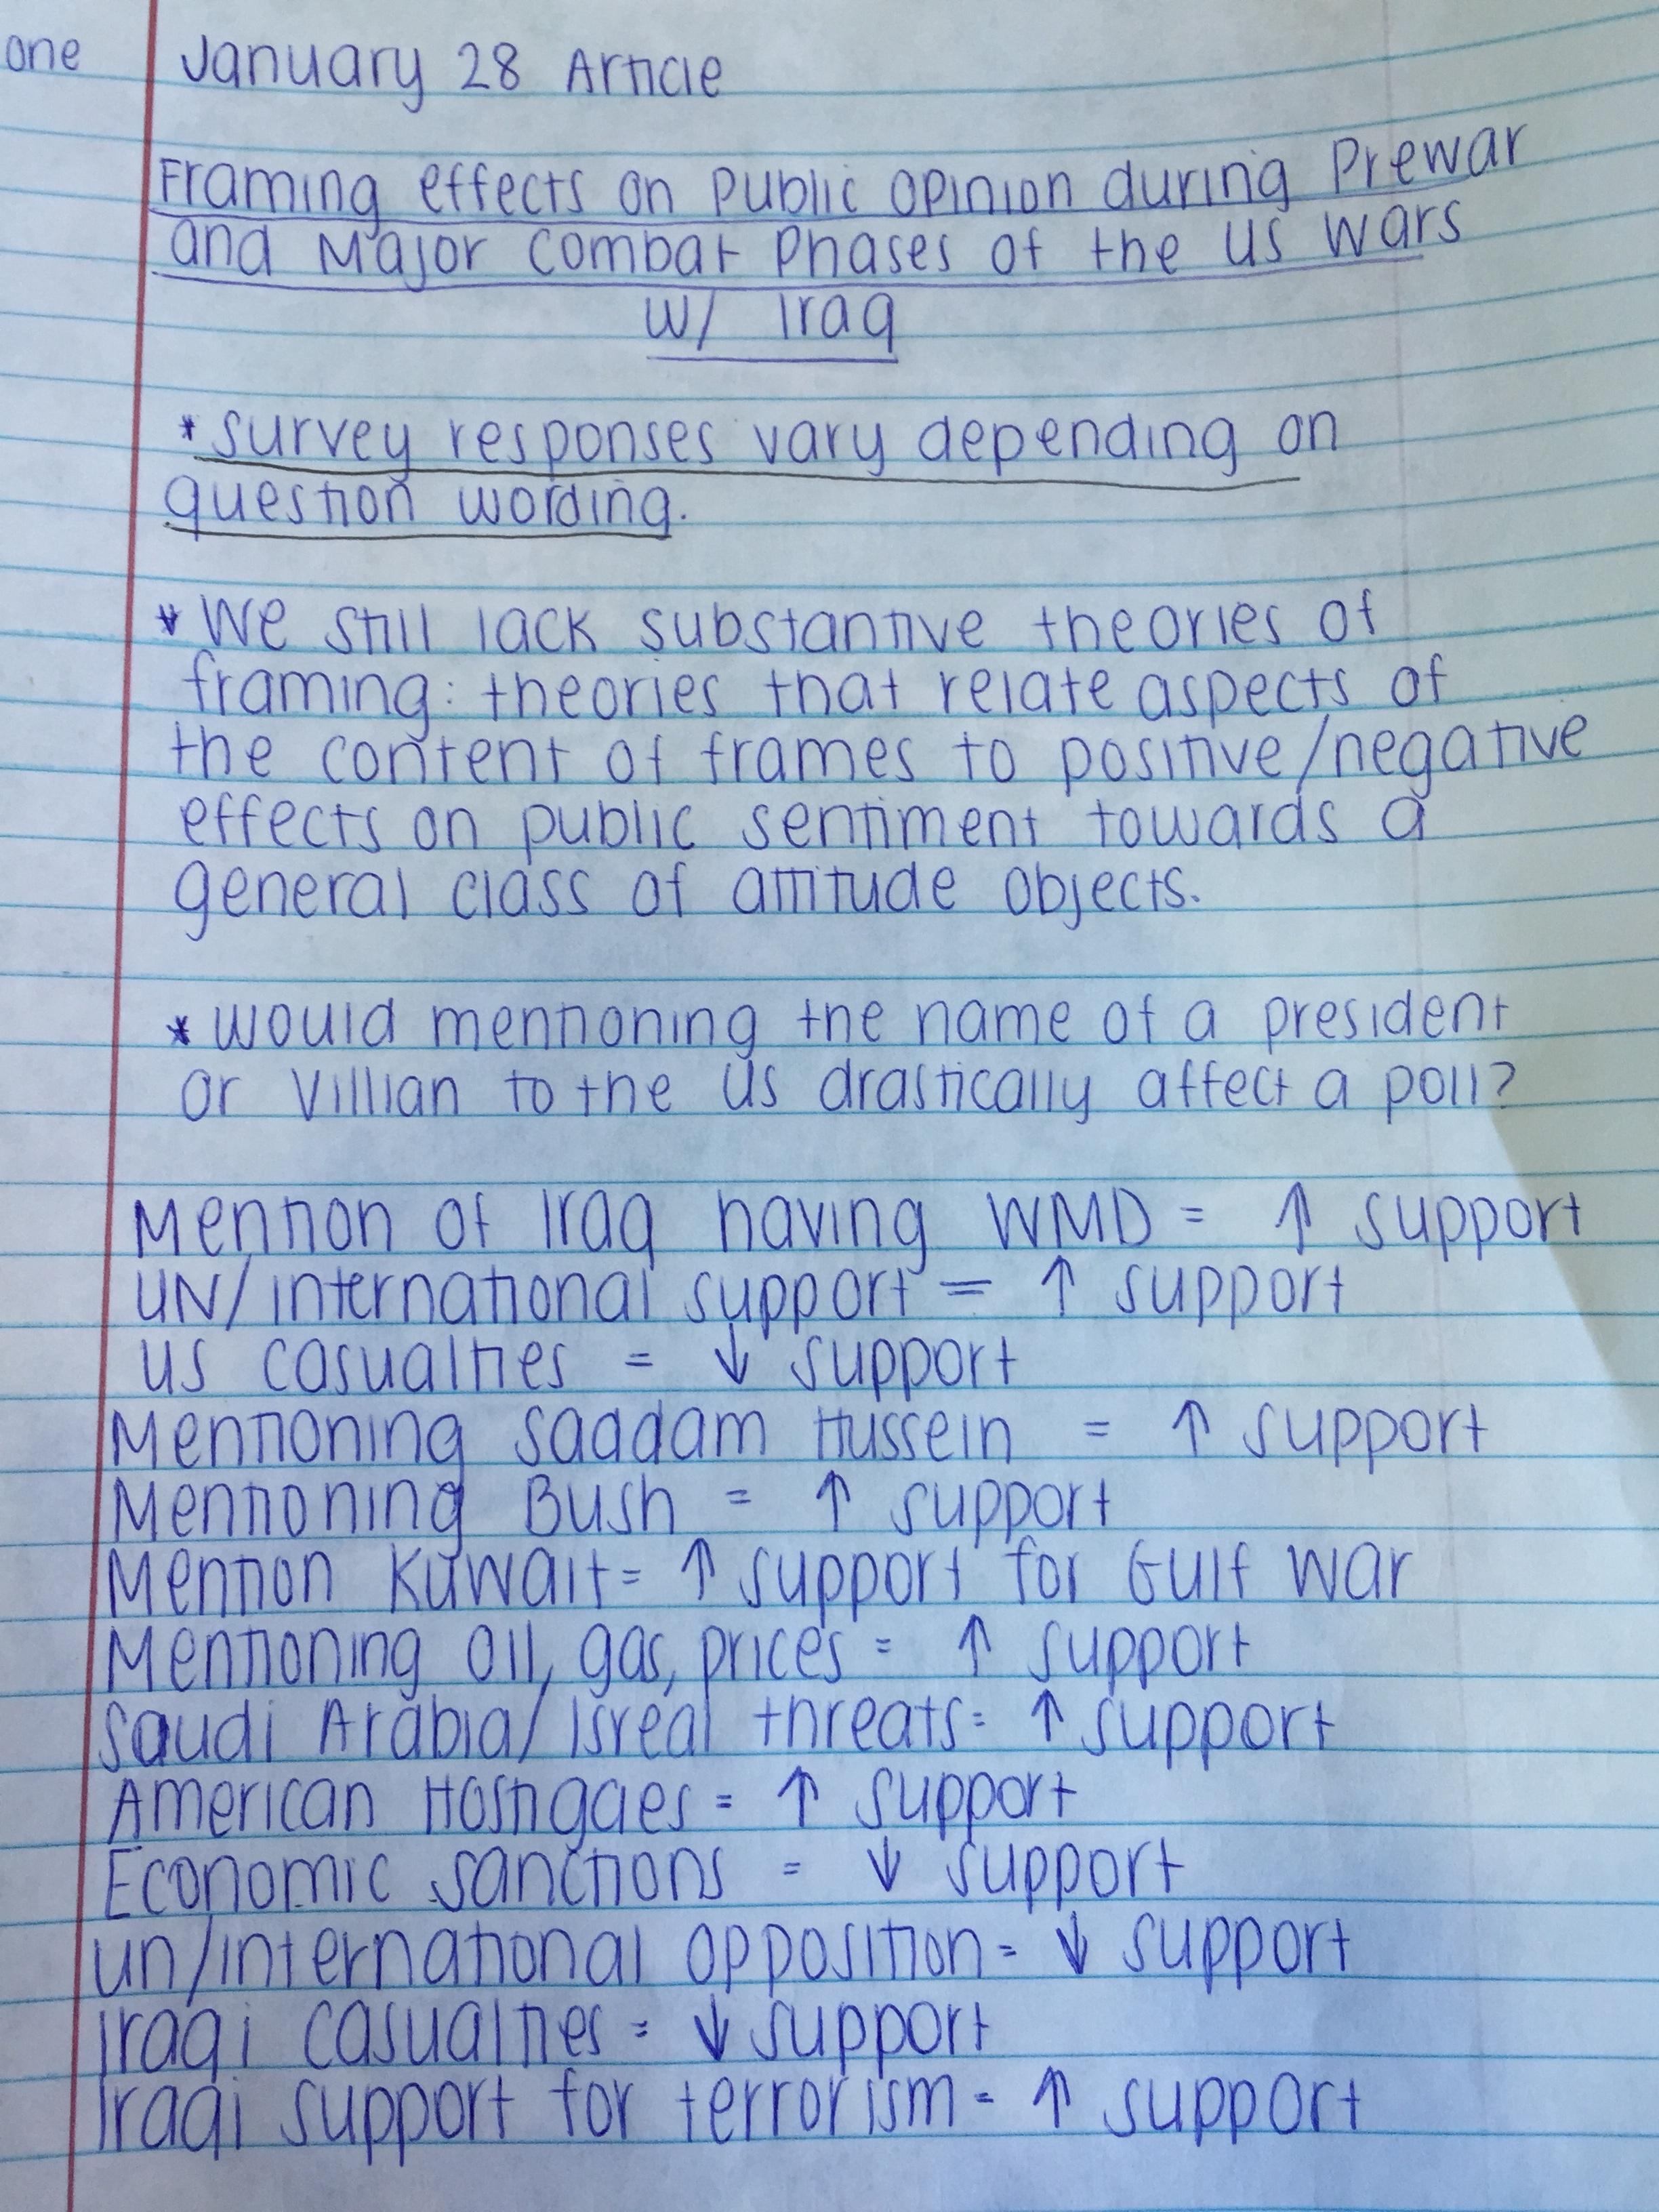 one
January 28 Article
Framing effects on Public Opinion during Prewar
and Major Combat Phases of the US Wars
w/ Iraq
* survey responses vary depending on
question wording.
* We still lack substantive theories of
framing: theories that relate aspects of
the content of frames to positive/negative
effects on public sentiment towards a
general class of attitude objects.
* would mentioning the name of a president
or Villian to the US drastically affect a poll?
Mention of Iraq having WMD = ↑ support
UN/international support = ↑ support
US casualties = ↓ support
Mentioning Saddam Hussein = ↑ support
Mentioning Bush = ↑ support
Mention Kuwait = ↑ support for Gulf War
Mentioning oil, gas, prices = ↑ support
Saudi Arabia/Isreal threats = ↑ support
American Hostigaes = ↑ support
Economic sanctions = ↓ support
un/international opposition = ↓ support
Iraqi casualties = ↓ support
Iraqi support for terrorism = ↑ support